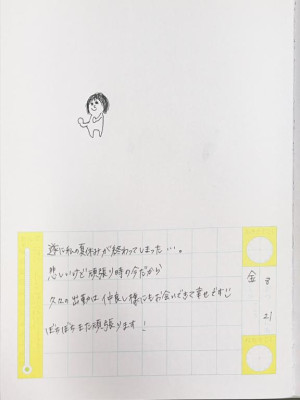 遂に私の夏休みが終わってしまった…。
悲しいけど頑張り時の今だから
久々の出勤は仲良し様にもお会いできて幸せです
ぼちぼちまた頑張ります!
金 8 21